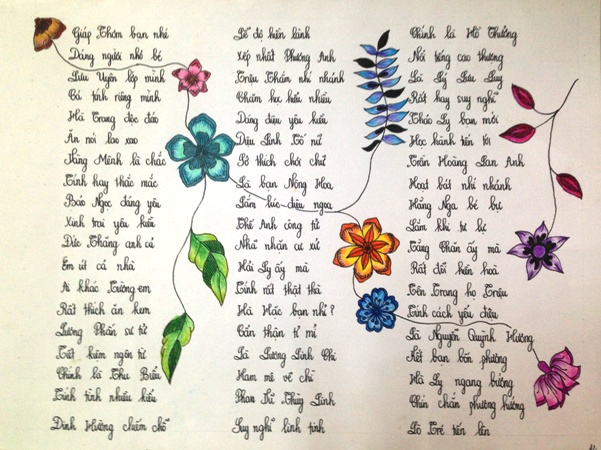 Giáp Thơm bạn nhé
Dáng người nhỏ bé
Lưu Uyên lớp mình
Cá tính riêng mình
Hà Trang độc đáo
Ăn nói lao xao
Hằng Mếnh là chắc
Tính hay thắc mắc
Bảo Ngọc đáng yêu
Xinh trai yêu kiều
Đức Thắng anh cả
Em út cả nhà
Ai khác Trường em
Rất thích ăn kem
Lương Phấn sư tử
Tiết kiệm ngôn từ
Chính là Thu Biểu
Tính tình nhiều kiểu
Đinh Hường chấm chỗ
độ hiền lành
Xếp nhất Phương Anh
Triệu Thắm nhí nhảnh
Chăm học hiểu nhiều
Dáng điệu yêu kiều
Diệu Linh Tố nữ
Sở thích chơi chữ
Là bạn Nông Hoa
Lắm lúc điệu ngoa
Thế Anh công tử
Nhã nhặn cư xử
Hải Ly ấy mà
Tính rất thật thà
Hà bạn nhỉ?
Cẩn thận tỉ mỉ
Là Lương Linh Chi
Ham mê vẽ chì
Phan Thị Thùy Linh
Suy nghĩ linh tinh
Chính là Hồ Thường
Nổi tiếng cao thượng
Là Lý Lưu Luy
Rất hay suy nghĩ
Thảo Ly bạn mới
Học hành tiến tới
Trần Hoàng Lan Anh
Hoạt bát nhí nhảnh
Hằng Nga bé bự
Lắm khi tư lự
Tăng Phấn ấy mà
Rất đỗi hiền hoà
Tên Trang họ Triệu
Tính cách yểu điệu
Là Nguyễn Quỳnh Hương
Kết bạn bốn phương
Hà Ly ngang bướng
Chín chắn phương hướng
Lò Tré tiến lên